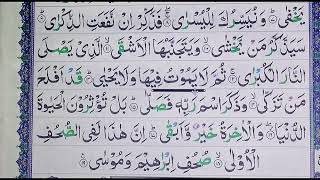 يَخْفٰى ۝ وَنُيَسِّرُكَ لِلْيُسْرٰى ۝ فَذَكِّرْ اِنْ نَّفَعَتِ الذِّكْرٰى ۝
سَيَذَّكَّرُ مَنْ يَّخْشٰى ۝ وَيَتَجَنَّبُهَا الْاَشْقَى ۝ الَّذِيْ يَصْلَى
النَّارَ الْكُبْرٰى ۝ ثُمَّ لَا يَمُوْتُ فِيْهَا وَلَا يَحْيٰى ۝ قَدْ اَفْلَحَ
مَنْ تَزَكّٰى ۝ وَذَكَرَ اسْمَ رَبِّهٖ فَصَلّٰى ۝ بَلْ تُؤْثِرُوْنَ الْحَيٰوةَ
الدُّنْيَا ۝ وَالْاٰخِرَةُ خَيْرٌ وَّاَبْقٰى ۝ اِنَّ هٰذَا لَفِي الصُّحُفِ
الْاُوْلٰى ۝ صُحُفِ اِبْرٰهِيْمَ وَمُوْسٰى ۝